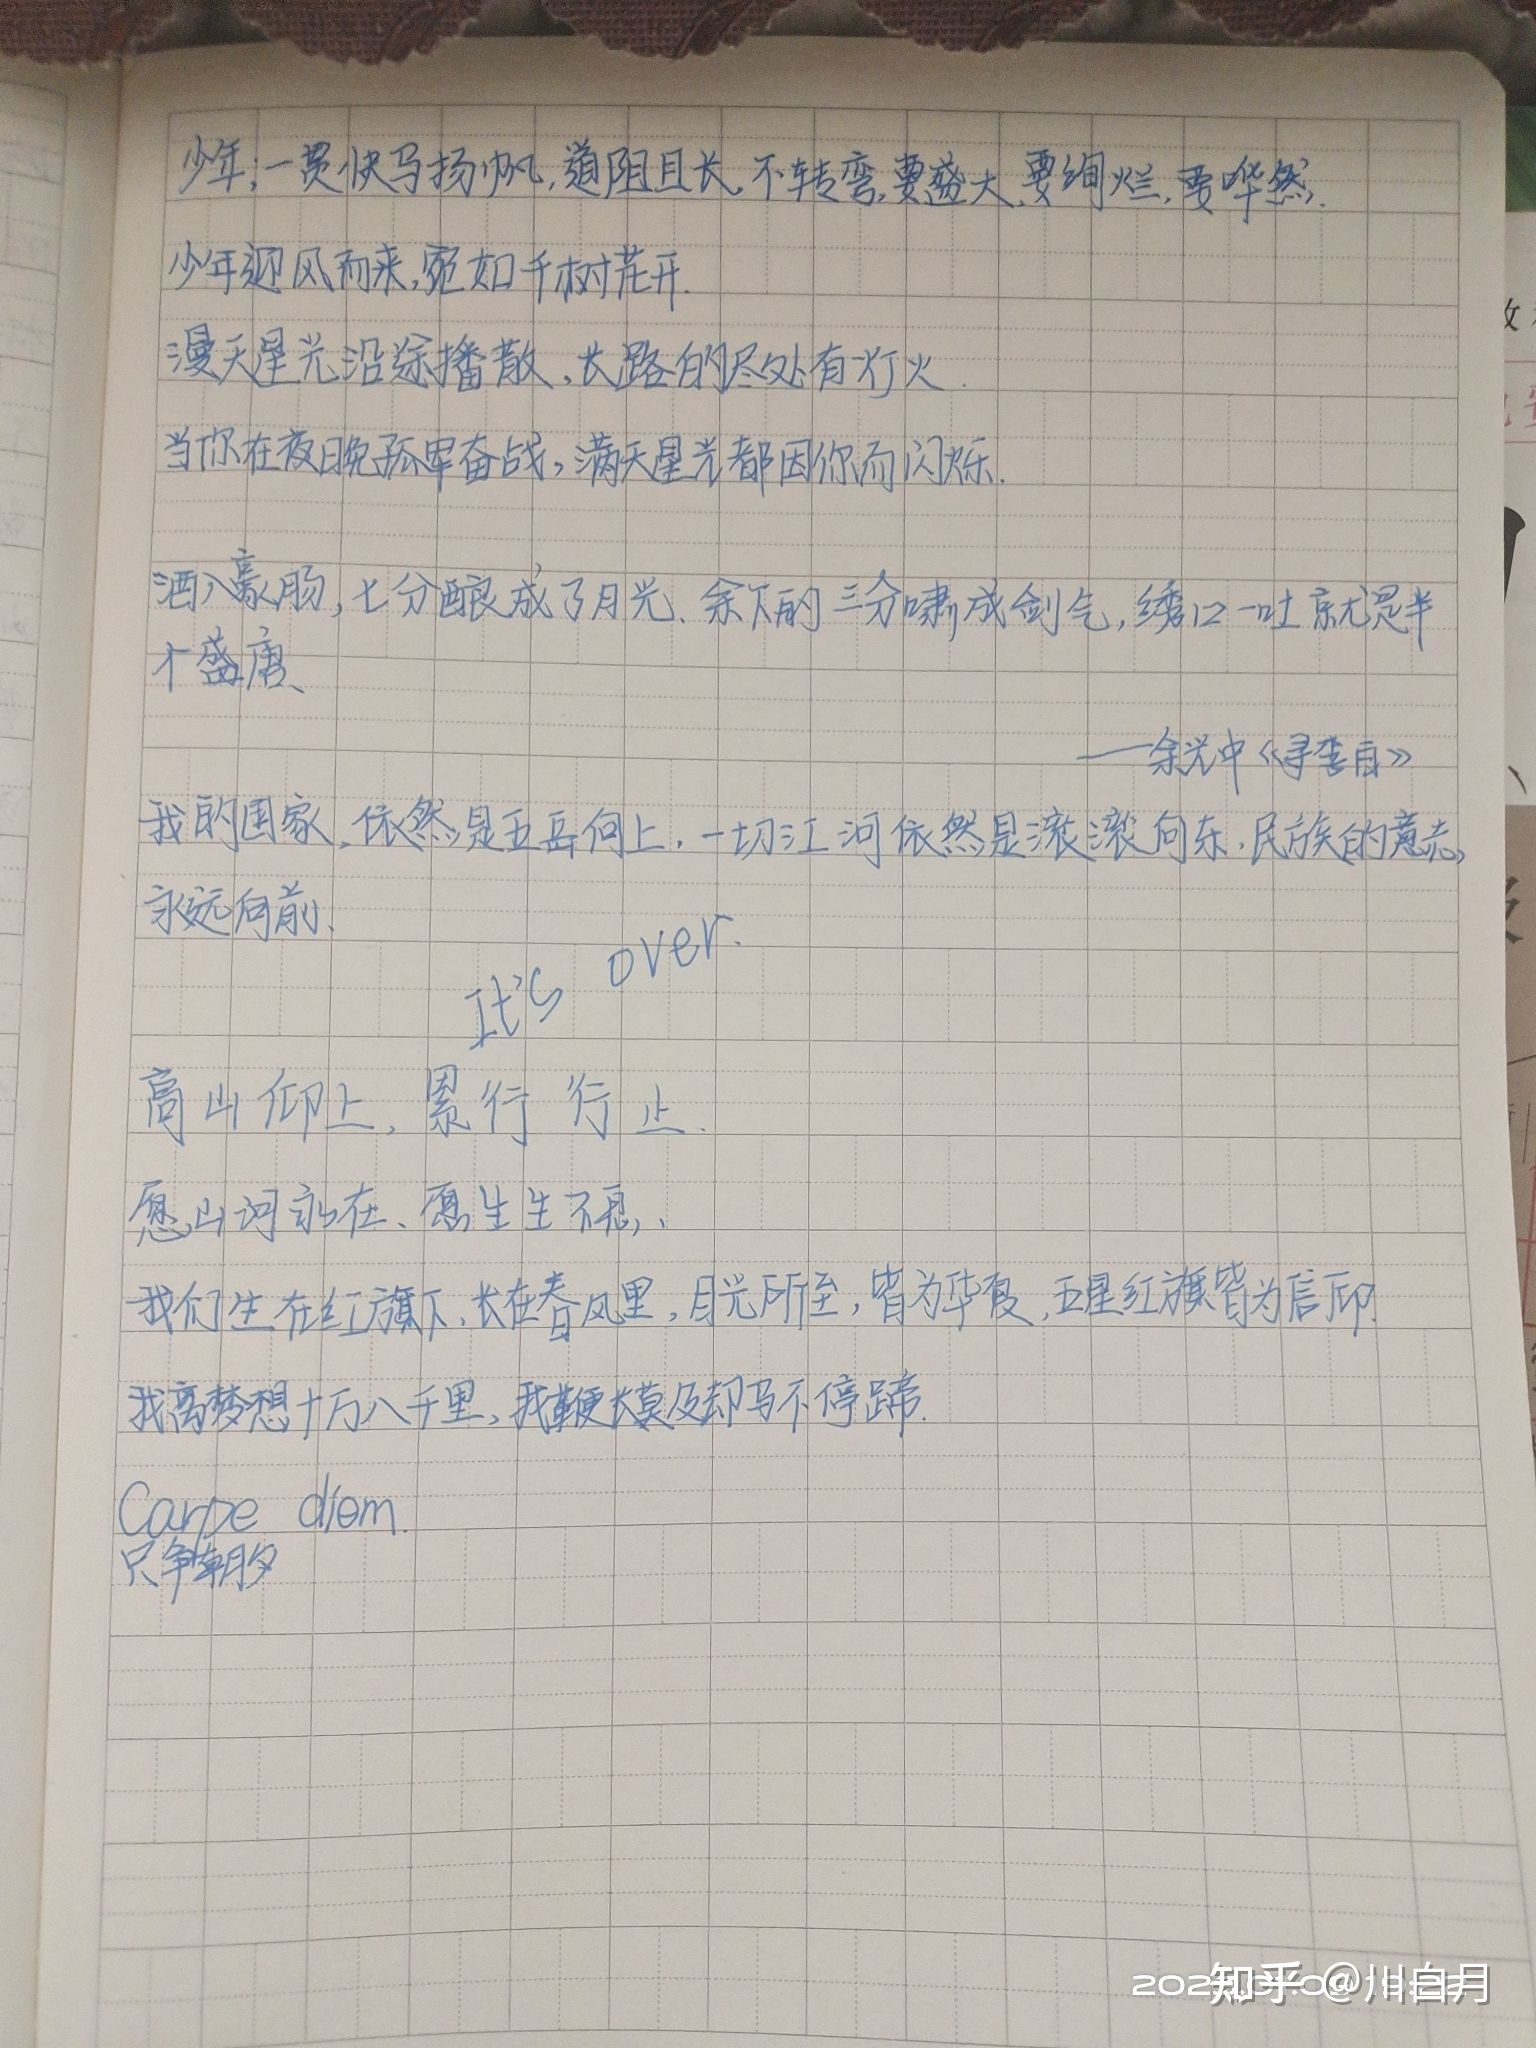 少年，一贯快马扬帆，道阻且长，不转弯，要盛大，要绚烂，要哗然．
少年迎风而来，宛如千树花开．
漫天星光沿途播散、长路的尽处有灯火．
当你在夜晚孤军奋战，满天星光都因你而闪烁．
酒入豪肠，七分酿成了月光、余下的三分啸成剑气，绣口一吐就是半
个盛唐、
——余光中《寻李白》
我的国家，依然是五岳向上，一切江河依然是滚滚向东，民族的意志，
永远向前．
It's over.
高山仰止，累行行止．
愿山河永在、愿生生不息，、
我们生在红旗下，长在春风里，目光所至，皆为华夏，五星红旗皆为信仰．
我离梦想十万八千里，我鞭长莫及却马不停蹄．
Carpe diem.
只争朝夕
知乎 @川白月